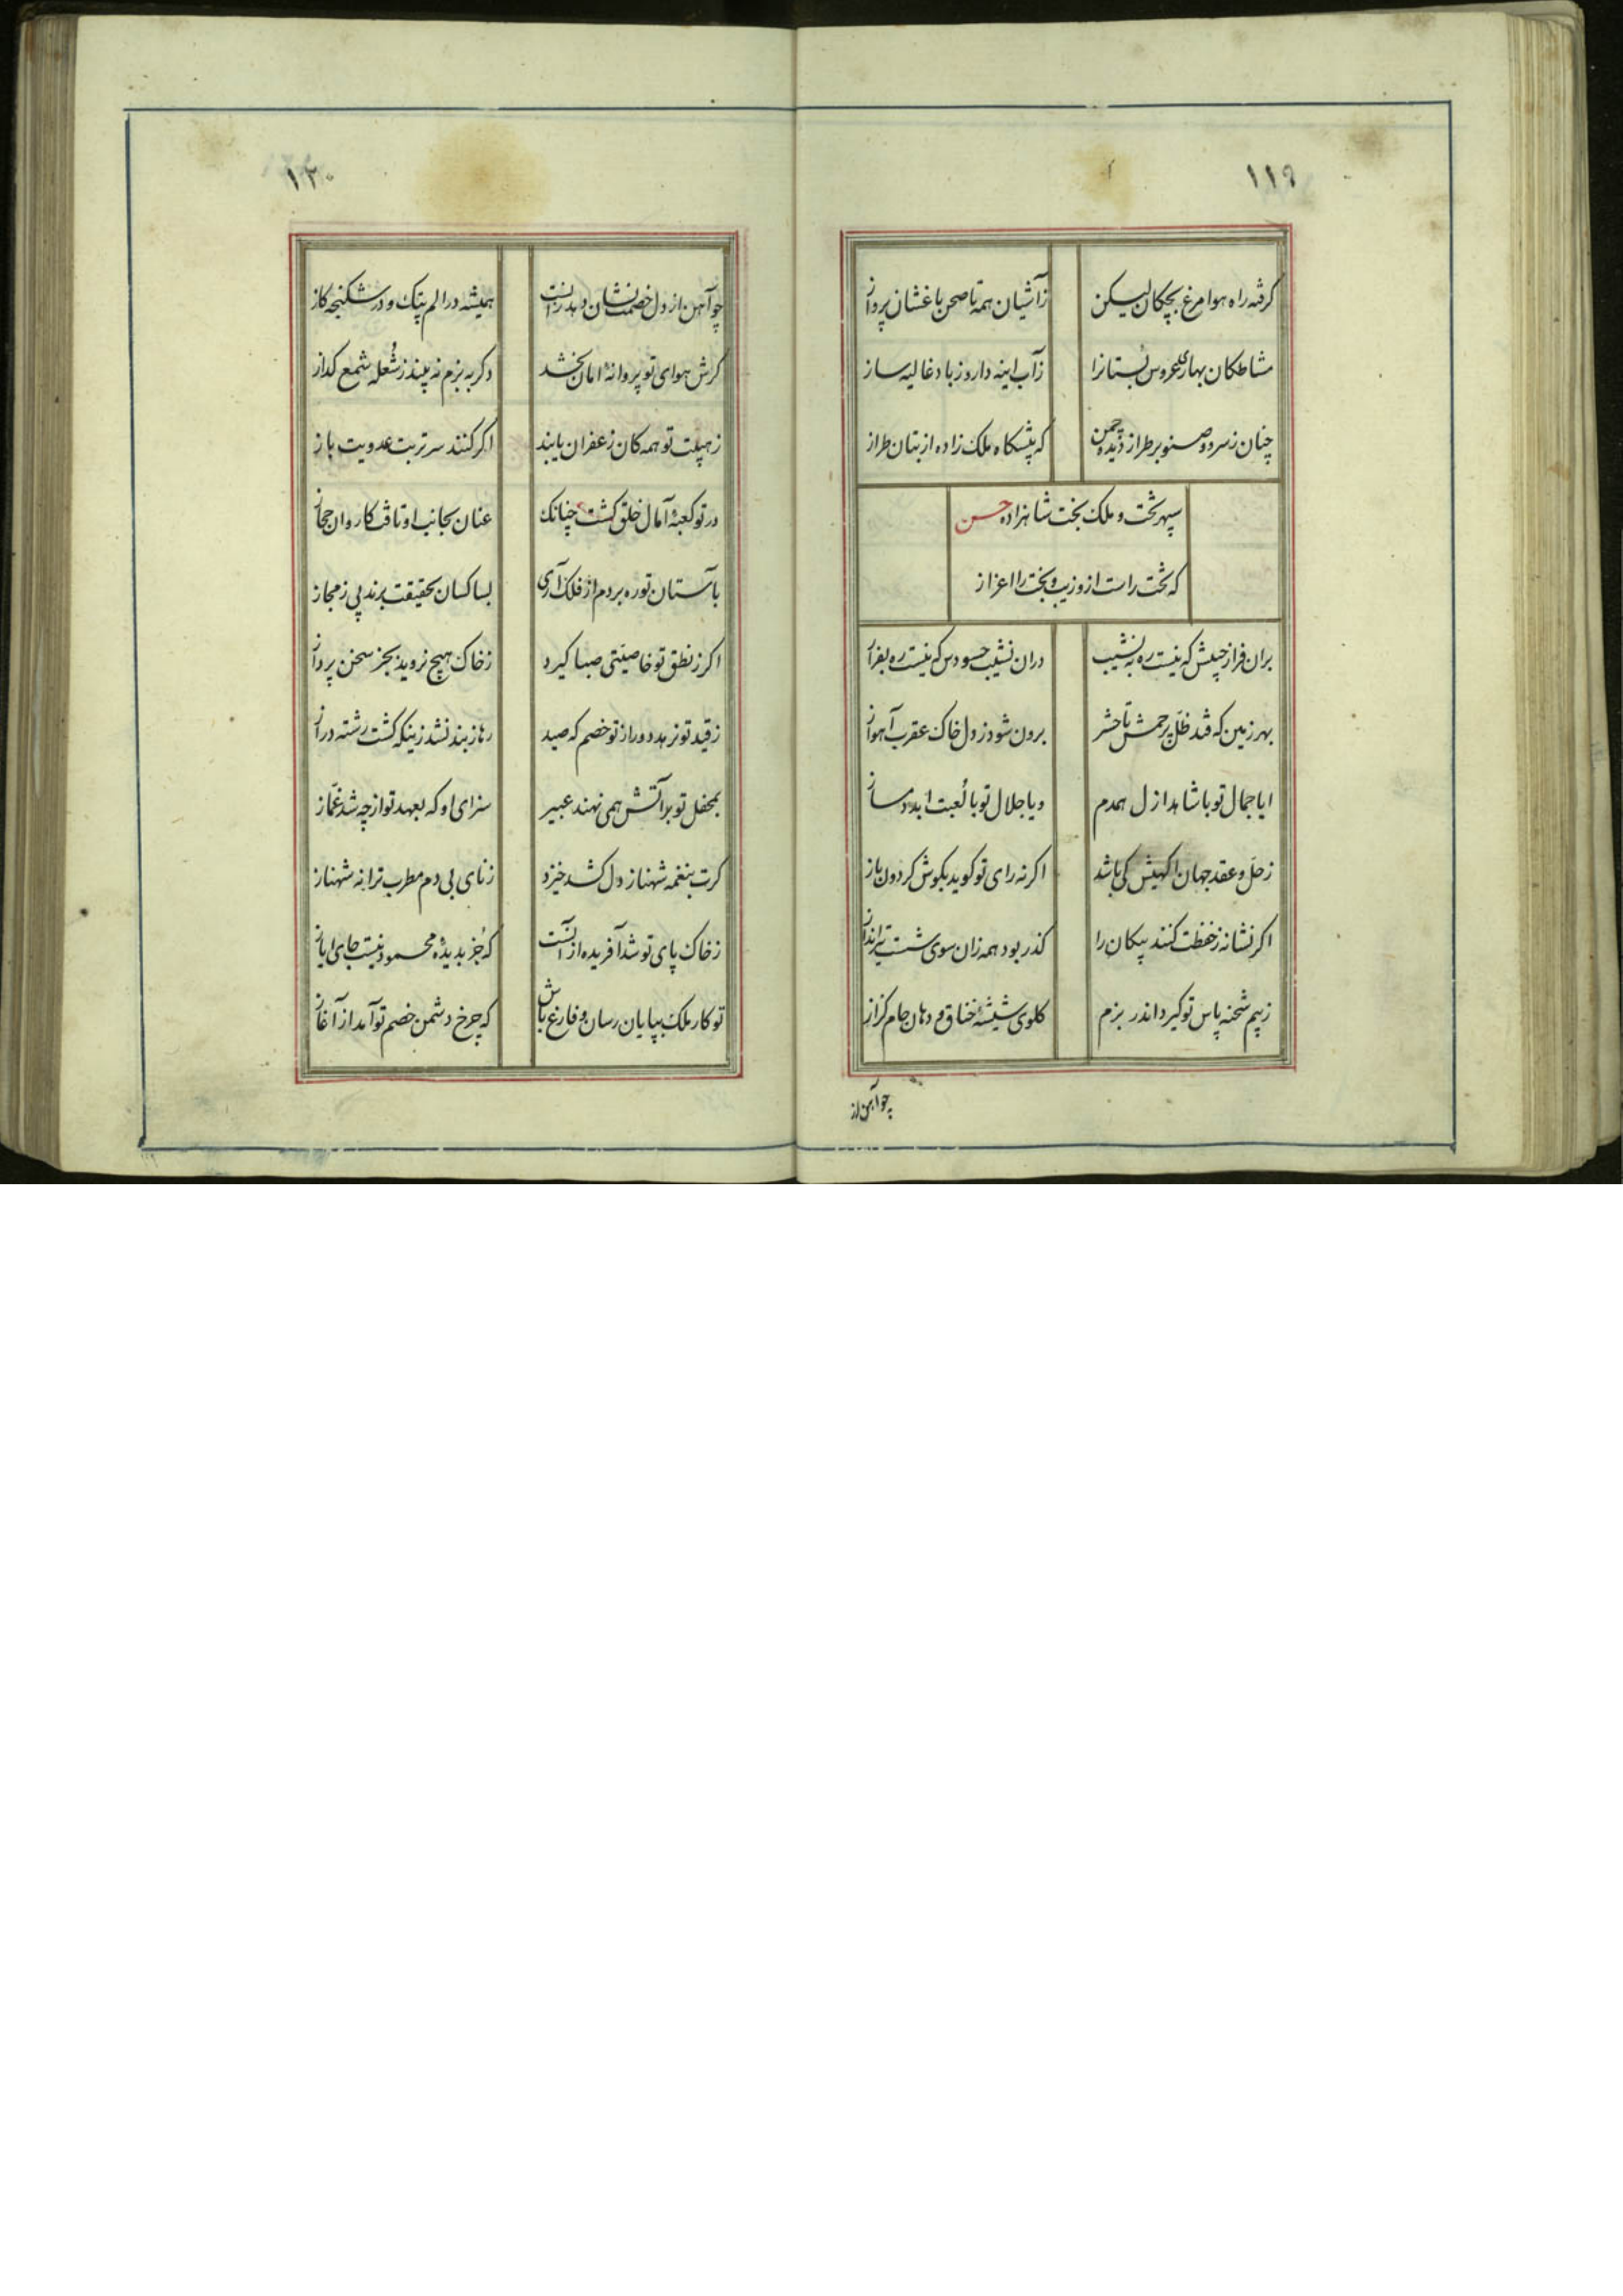 ۱۱۹
گرفته راه هوا مرغ بچکان لیکن
زآشیان همه تا صحن باغشان پرواز
مشاطکان بهاری عروس بستانرا
زآب اینه دار و زباد غالیه ساز
چنان زسرو و صنوبر طراز دیده چمن
که پیشکاه ملک زاده از بتان طراز
سپهر تخت و ملک بخت شاهزاده حسن
که تخت راست ازو زیب و بخت را اعزاز
بران فراز جیشش که نیست ره به نشیب
دران نشیب حسودس که نیست ره بفراز
بهر زمین که فتد ظل پرچمش تا حشر
برون شود ز دل خاک عقرب آهواز
ایا جمال تو با شاهد ازل همدم
و یا جلال تو با لعبت ابد دمساز
زحل و عقد جهان اکهیش کی باشد
اکر نه رای تو کوید بکوش کردون باز
اکر نشانه زحفظت کنند پیکان را
کذر بود همه زان سوی شست تیرانداز
زبیم شحنه پاس تو کیرد اندر بزم
کلوی شیشه خناق و دهان جام کزاز
چو آهن از
۱۲۰
چو آهن از دل خصمت نشان دهد زآنست
همیشه در الم پتک و در شکنجه کاز
کرش هوای تو پروانهٔ امان بخشد
دکر به بزم نه بیند زشعله شمع کداز
زهیبت تو همه کان زعفران یابند
اکر کنند سر تربت عدویت باز
در تو کعبهٔ آمال خلق کشت چنانک
عنان بجانب او تافت کاروان حجاز
بآستان تو ره بردم از فلک آری
بسا کسان بحقیقت برند پی زمجاز
اکر زنطق تو خاصیتی صبا کیرد
زخاک هیچ نروید بجز سخن پرداز
زقید تو نرهد دور از تو خصم که صید
رها زبند نشد زینکه کشت رشته دراز
بمحفل تو بر آتش همی نهند عبیر
سزای او که بعهد تو از چه شد غماز
کرت بنغمه شهناز دل کشد خیزد
زنای بی دم مطرب ترانه شهناز
زخاک پای تو شد آفریده از آنست
که جز بدیدهٔ محمود نیست جای ایاز
تو کار ملک بپایان رسان و فارغ باش
که چرخ دشمن خصم تو آمد از آغاز